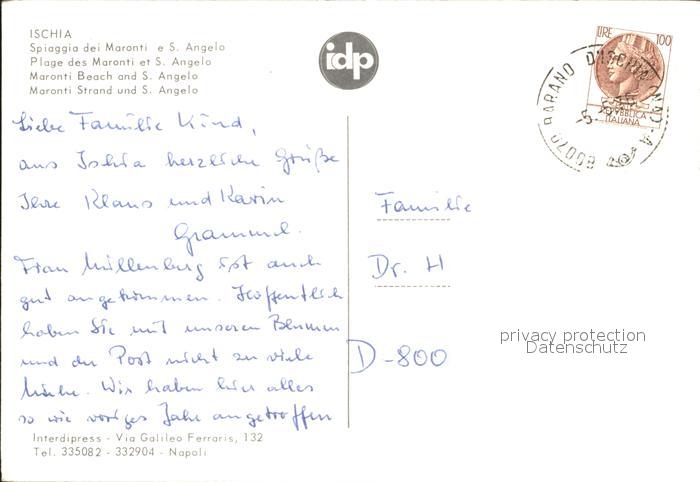 ISCHIA
Spiaggia dei Maronti e S. Angelo
Plage des Maronti et S. Angelo
Maronti Beach and S. Angelo
Maronti Strand und S. Angelo
idp
LIRE 100
REPUBBLICA
ITALIANA
80070 BARANO D'ISCHIA (NA)
Liebe Familie Kind,
aus Ischia herzliche Grüße
Ihre Klaus und Karin
Grammel.
Frau Müllenberg ist auch
gut angekommen. Hoffentlich
haben Sie mit unseren Blumen
und der Post nicht zu viele
Mühe. Wir haben hier alles
so wie voriges Jahr angetroffen
Familie
Dr. H
D-800
privacy protection
Datenschutz
Interdipress - Via Galileo Ferraris, 132
Tel. 335082 - 332904 - Napoli